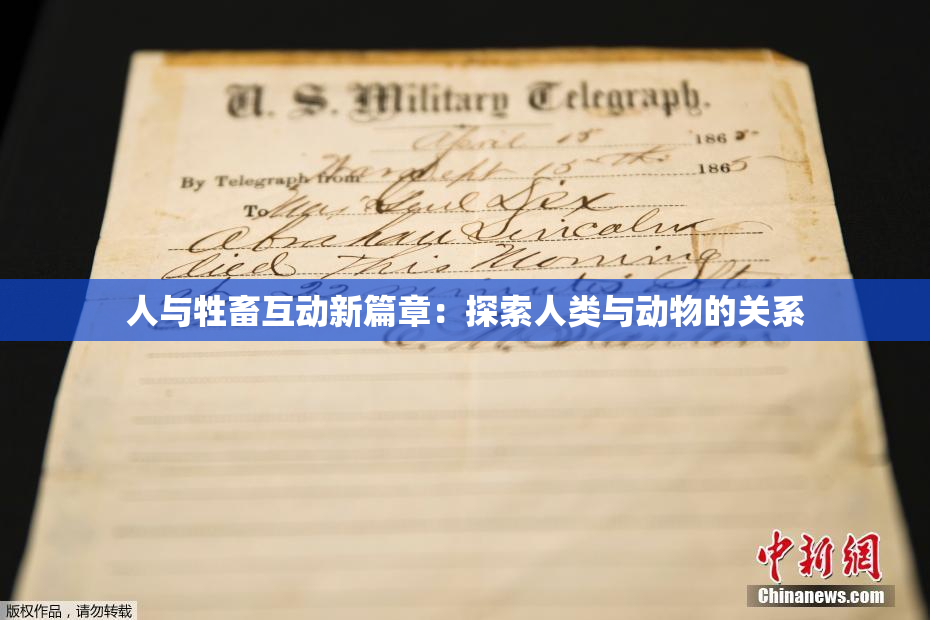 U. S. Military Telegraph.
April 15 1865
By Telegraph from War Dept 15th 1865
To Maj Genl Dix
Abraham Lincoln
died This Morning
at 22 minutes after
人与牲畜互动新篇章：探索人类与动物的关系
E. M. Stanton
中新網
Chinanews.com
版权作品，请勿转载